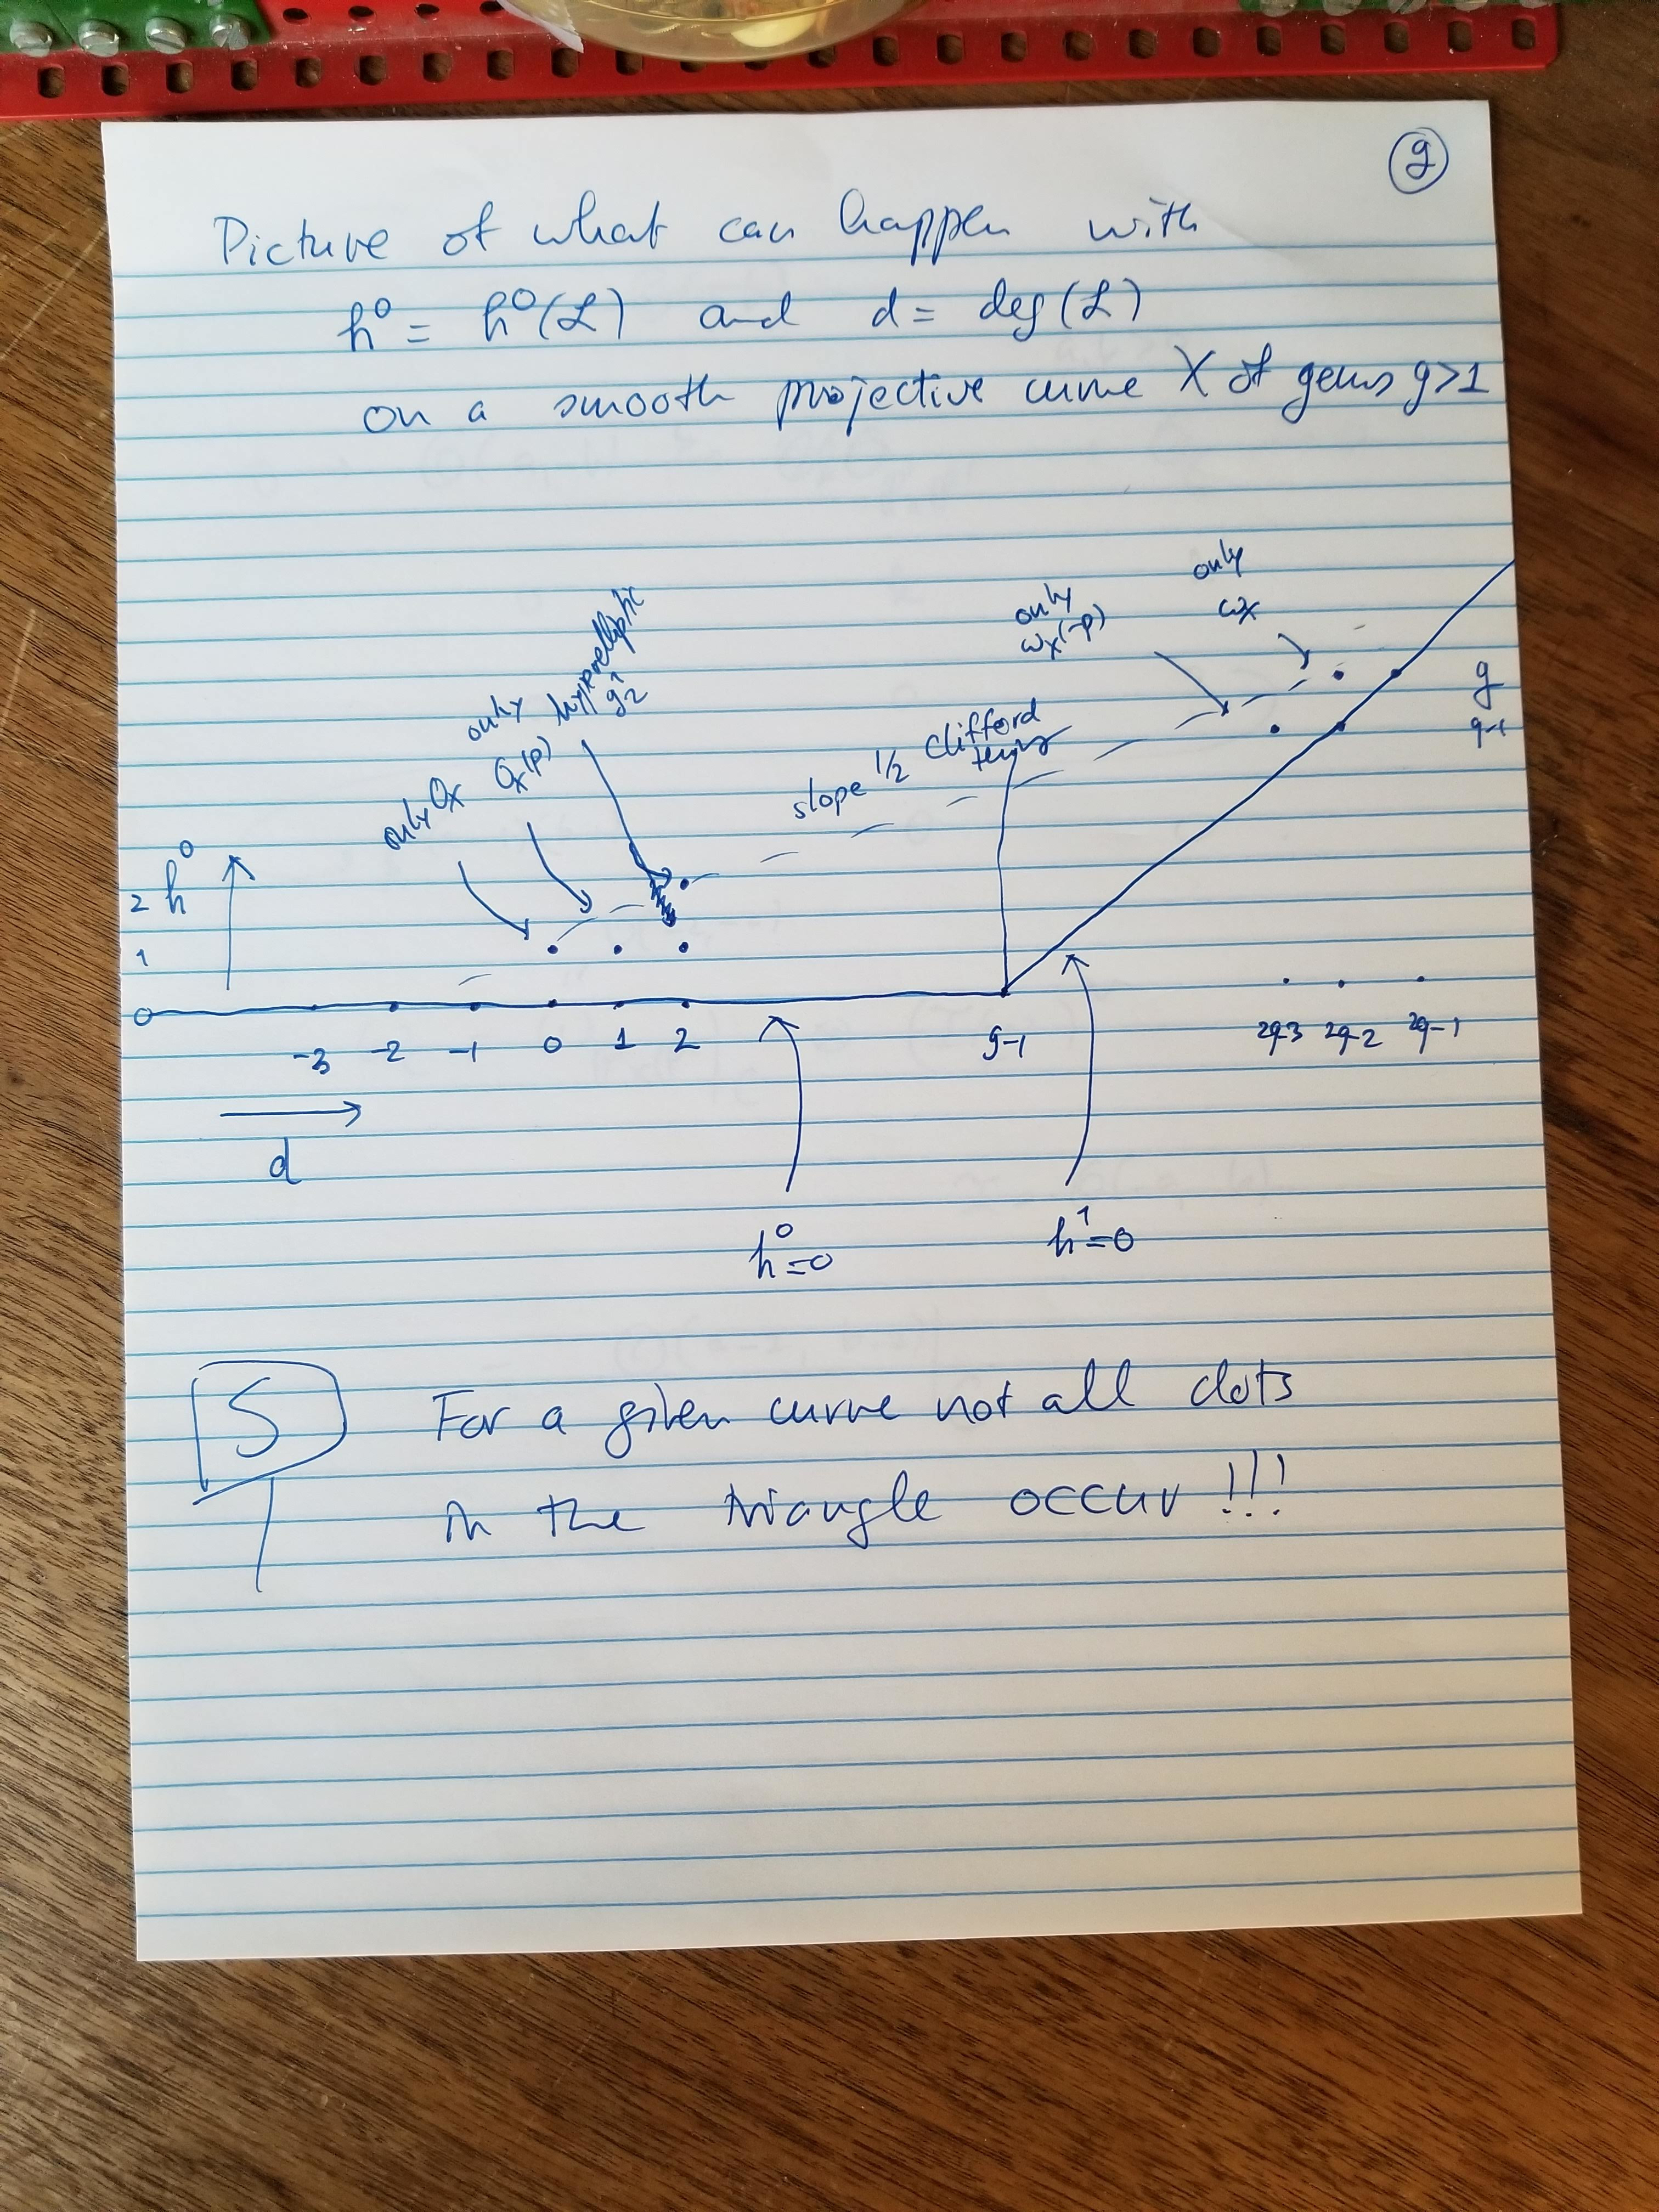 9
Picture of what can happen with
h⁰ = h⁰(ℒ) and d = deg(ℒ)
on a smooth projective curve X of genus g>1
only
ω_X
only
ω_X(-p)
hyperelliptic
g¹₂
only
O_X(p)
only O_X
slope 1/2 Clifford
g
g-1
h⁰
2
1
0
-3 -2 -1 0 1 2 g-1 2g-3 2g-2 2g-1
d
h⁰=0
h¹=0
S
For a given curve not all dots
in the triangle occur!!!